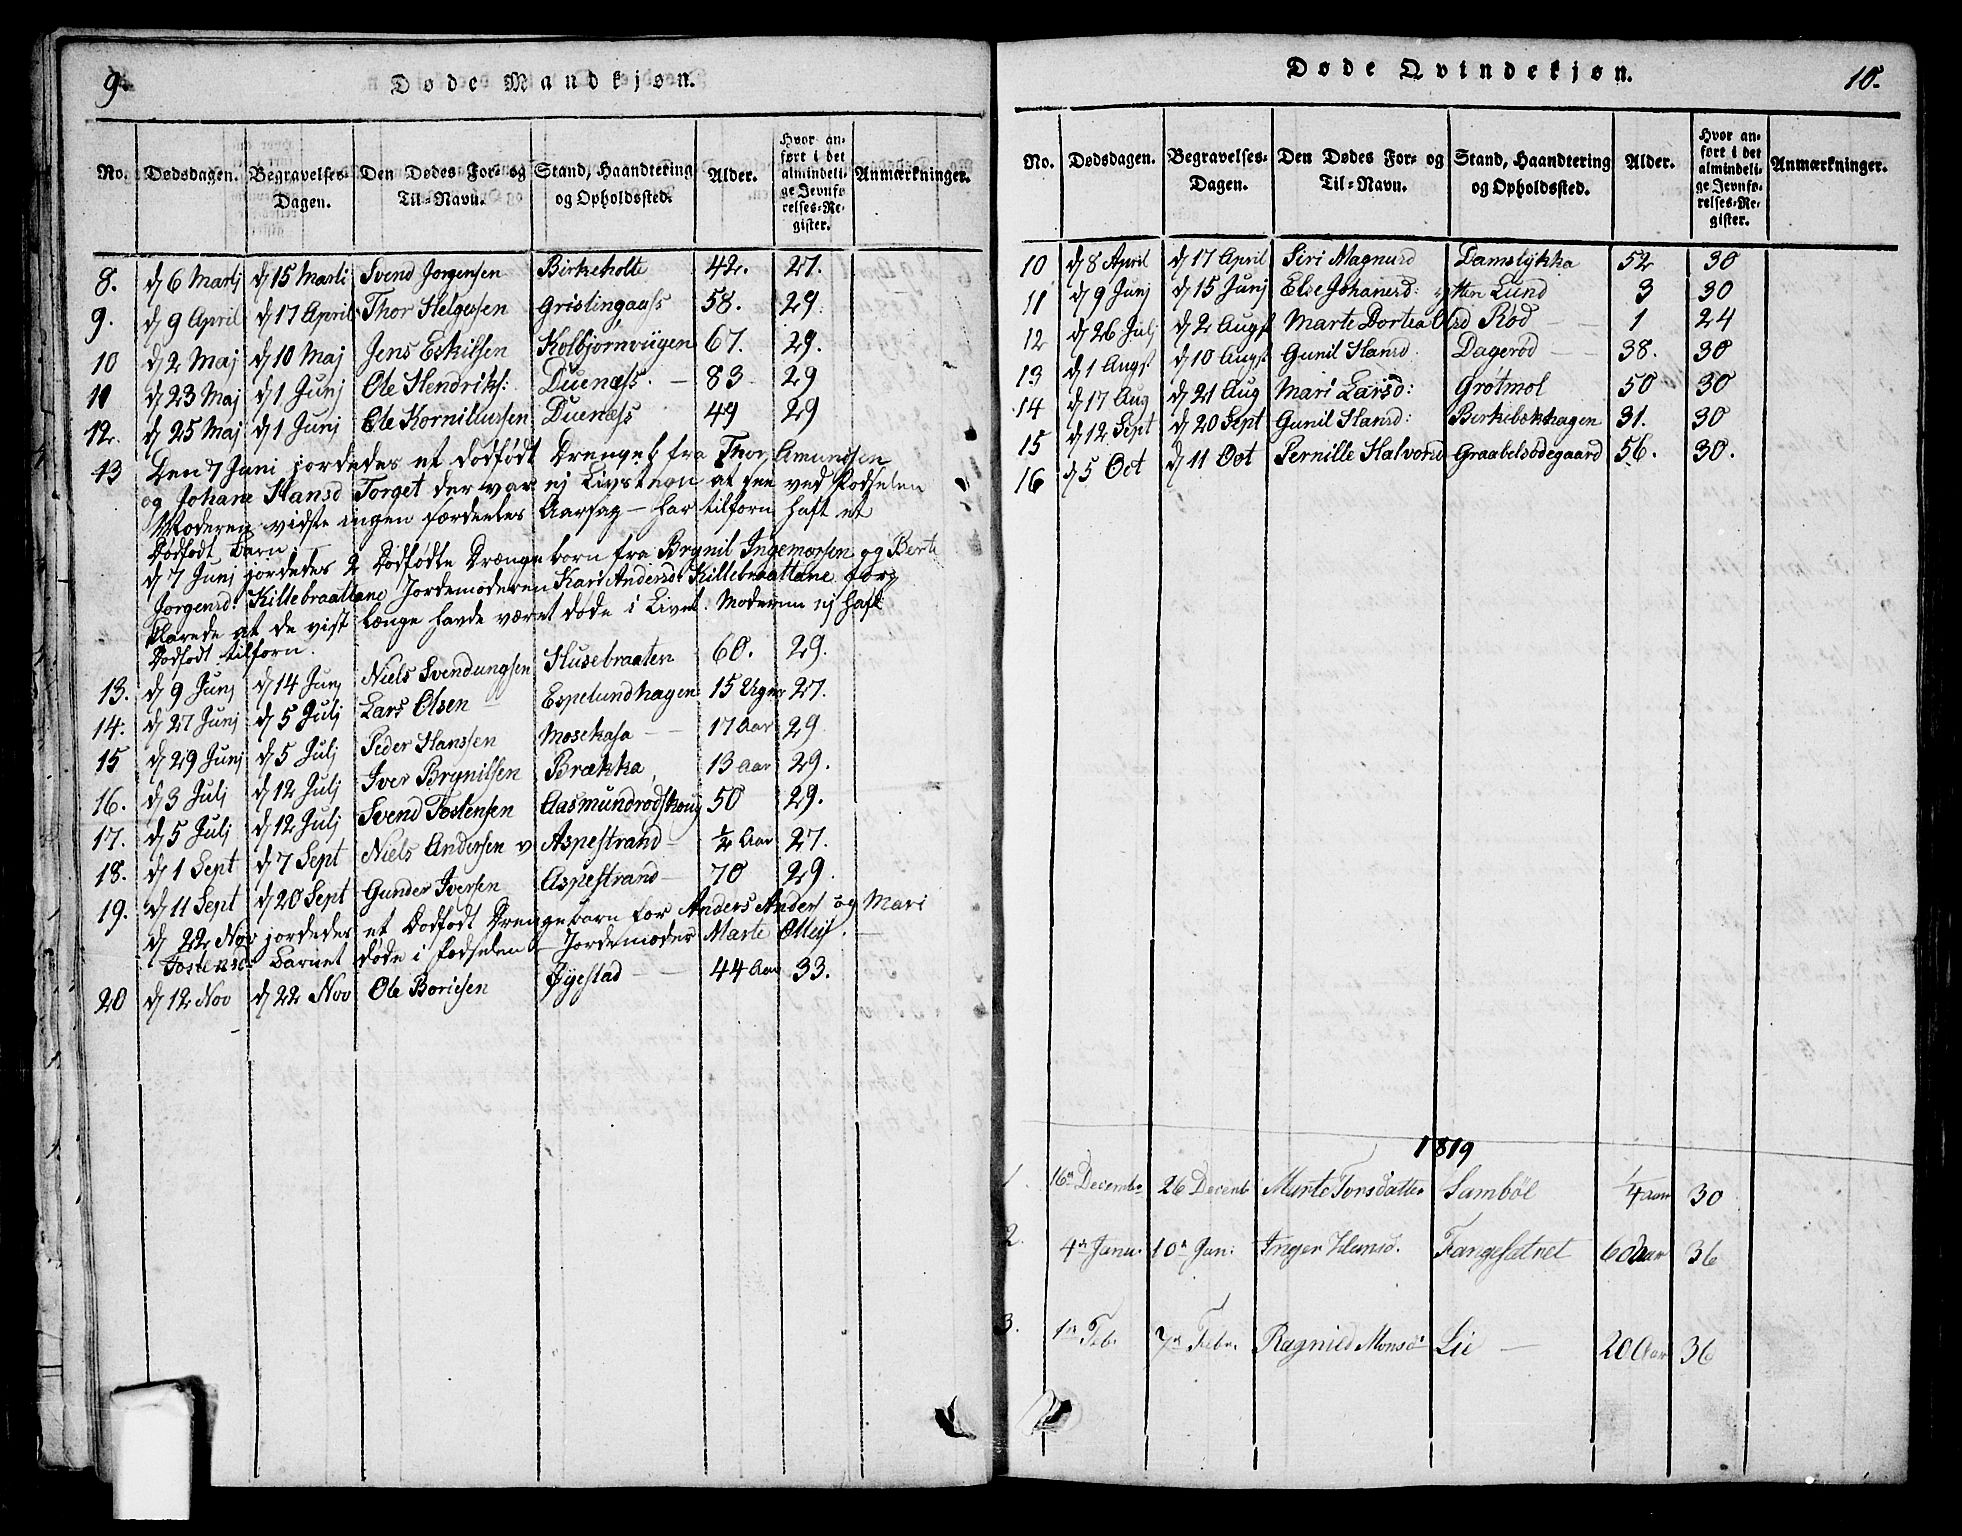 9.
Døde Mandkjøn.
No. Dødsdagen. Begravelses-Dagen. Den Dødes For- og Til-Navn. Stand, Haandtering og Opholdssted. Alder. Hvor anført i det almindelige Jevnførelses-Register. Anmærkninger.
8. d 6 Martj d 15 Marti Svend Jorgensen Birkeholte 42. 27.
9. d 9 April d 17 April Thor Helgesen Gristingaass 58. 29.
10 d 2 Maj d 10 Maj Jens Eskilsen Kolbjornviigen 67. 29.
11 d 23 Maj d 1 Junj Ole Hendriks: Duenæss. — 83 29
12. d 25 Maj d 1 Junj Ole Korniliussen Duenæss 49 29
13 Den 7 Juni jordedes et dodfødt Drengeb fra Thor Amundsen
og Johane Hansd Torget der var ej Livstegn at see ved Fodselen
Moderen vidste ingen særdeeles Aarsag — har tilforn haft et
Dødfodt Barn
d 7 Junj jordedes 2 Dodfødte Drænge born fra Brynil Ingemorsen og Berte
Jorgensd: Killebraattane Jordemoderen Kari Andersd: Killebraattane for
klarede at de vist længe havde været døde i Livet. Moderen ej haft
Dodfodt tilforn.
13. d 9 Junj d 14 Junj Niels Svendungsen Husebraaten 60. 29.
14. d 27 Junj d 5 Julj Lars Olsen Espelundhagen 15 Uger 27.
15 d 29 Junj d 5 Julj Peder Hanssen Mosekasa — 17 Aar 29
16. d 3 Julj d 12 Julj Iver Brynilsen Brækka 13 Aar 29.
17. d 5 Julj d 12 Julj Svend Tostensen Aasmundrodskoug 50 29.
18. d 1 Sept d 7 Sept Niels Andersen v Aspestrand — ½ Aar 27.
19. d 11 Sept d 20 Sept Gunder Iversen Aspestrand — 70 29.
d 22 Nov jordedes et Dodfodt Drengebarn for Anders Anders og Mari
Tostensd: Barnet døde i fødselen — Jordemoder Marte
20 d 12 Nov d 22 Nov Ole Boriesen Øyestad — 44 Aar 33.
Døde Qvindekjøn.
10.
No. Dødsdagen. Begravelses-Dagen. Den Dødes For- og Til-Navn. Stand, Haandtering og Opholdssted. Alder. Hvor anført i det almindelige Jevnførelses-Register. Anmærkninger.
10 d 8 April d 17 April Siri Magnusd Damslykka 52 30
11 d 9 Junj d 15 Junj Else Johanesd: ytter Lund 3 30
12 d 26 Julj d 2 Augst Marte Dortea Olsd Rod — 1 24
13 d 1 Augst d 10 Augst Gunil Hansd: Dagerød — 38. 30
14 d 17 Aug d 21 Aug Mari Larsd: Grøtmol 50 30
15 d 12 Sept d 20 Sept Gunil Hansd: Birkebekhagen 31. 30
16 d 5 Oct d 11 Oct Pernille Halvorsd Graabelsødegaard 56. 30.
1819
1. 16 Decembr 26 Decemb Marte Torsdatter Sambøl ¼ aar 30
2. 4 Janu. 10 Jan: Inger Hansd. Fangesætret 60 Aar 36
3. 1 Feb. 7 Febr. Ragnild Monsd Lie — 20 Aar 36